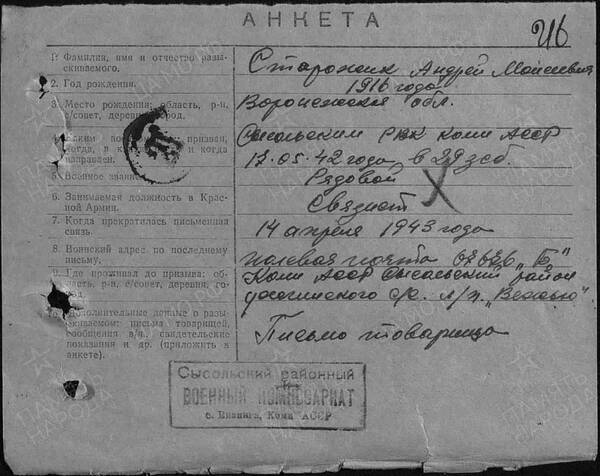 АНКЕТА
216
1. Фамилия, имя и отчество разыскиваемого.
Старожик Андрей Моисеевич
2. Год рождения.
1916 года
3. Место рождения: область, р-н, с/совет, деревня, город.
Воронежская обл.
4. Каким призван, когда, в и когда направлен.
Сысольским РВК Коми АССР
17.05.42 года в 29 зсб.
5. Военное звание
Рядовой
6. Занимаемая должность в Красной Армии.
Связист
7. Когда прекратилась письменная связь.
14 апреля 1943 года
8. Воинский адрес по последнему письму.
полевая почта "Б"
9. Где проживал до призыва: область, р-н, с/совет, деревня, город.
Коми АССР Сысольский район
с/с. л/п.
Дополнительные данные о разыскиваемом: письма товарищей, сообщения в/ч., свидетельские показания и др. (приложить к анкете).
Письмо товарища
Сысольский районный
ВОЕННЫЙ КОМИССАРИАТ
с. Визинга, Коми АССР